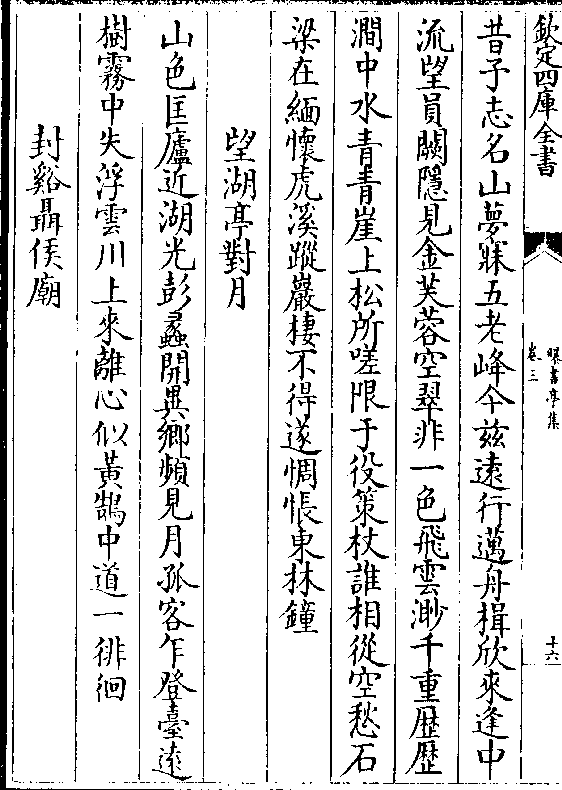 欽定四庫全書
曝書亭集
卷三
十六
昔予志名山夢寐五老峰今兹遠行邁舟楫欣來逢中
流望員闕隱見金芙蓉空翠非一色飛雲渺千重歴歴
澗中水青青崖上松所嗟限于役策杖誰相從空愁石
梁在緬懷虎溪蹤巖棲不得遂惆悵東林鐘
望湖亭對月
山色匡廬近湖光彭蠡開異鄉頻見月孤客乍登臺逺
樹霧中失浮雲川上來離心似黃鵠中道一徘徊
封谿聶侯廟